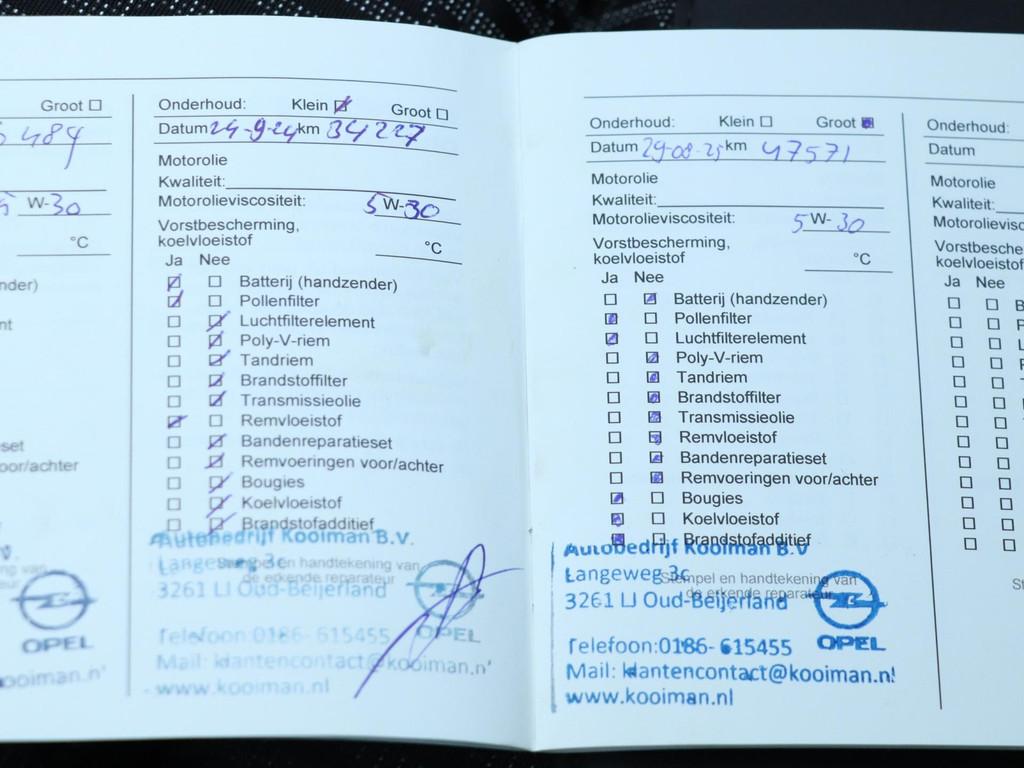 Groot
484
W-30
°C
nder)
nt
set
oor/achter
OPEL
ooiman.n'
Onderhoud: Klein Groot
Datum 24-9-24 km 34227
Motorolie
Kwaliteit:
Motorolieviscositeit: 5 W-30
Vorstbescherming,
koelvloeistof °C
Ja Nee
Batterij (handzender)
Pollenfilter
Luchtfilterelement
Poly-V-riem
Tandriem
Brandstoffilter
Transmissieolie
Remvloeistof
Bandenreparatieset
Remvoeringen voor/achter
Bougies
Koelvloeistof
Brandstofadditief
Autobedrijf Kooiman B.V.
Langeweg 3c
Stempel en handtekening van
de erkende reparateur
3261 LJ Oud-Beijerland
OPEL
Telefoon:0186-615455
Mail: klantencontact@kooiman.n'
www.kooiman.nl
Onderhoud: Klein Groot
Datum 29-08-25 km 47571
Motorolie
Kwaliteit:
Motorolieviscositeit: 5 W-30
Vorstbescherming,
koelvloeistof °C
Ja Nee
Batterij (handzender)
Pollenfilter
Luchtfilterelement
Poly-V-riem
Tandriem
Brandstoffilter
Transmissieolie
Remvloeistof
Bandenreparatieset
Remvoeringen voor/achter
Bougies
Koelvloeistof
Brandstofadditief
Autobedrijf Kooiman B.V
Langeweg 3c
Stempel en handtekening van
de erkende reparateur
3261 LJ Oud-Beijerland
OPEL
Telefoon:0186-615455
Mail: klantencontact@kooiman.n!
www.kooiman.nl
Onderhoud:
Datum
Motorolie
Kwaliteit:
Motorolievisc
Vorstbesche
koelvloeistof
Ja Nee